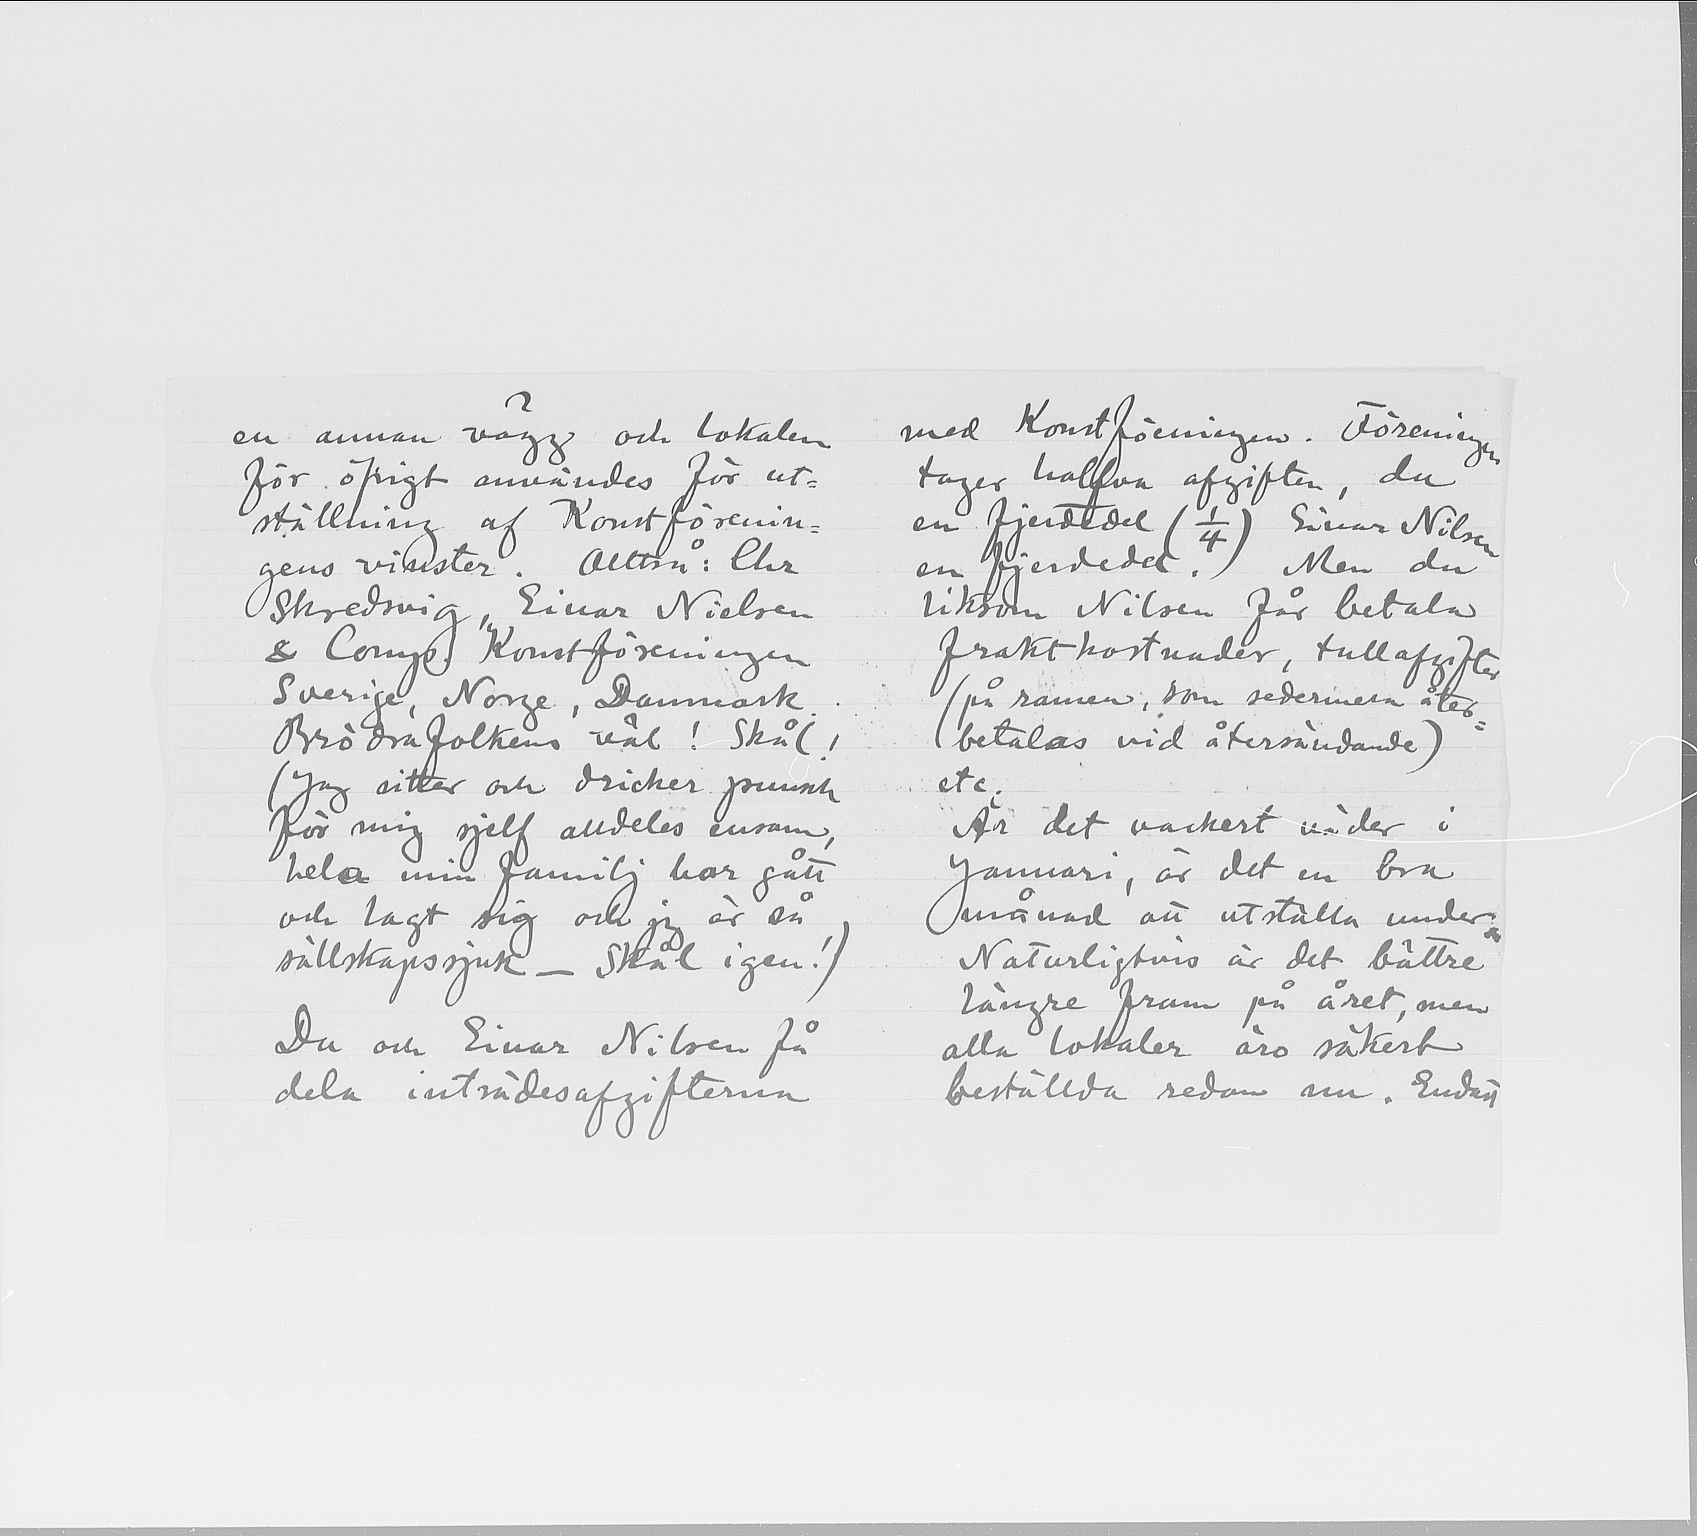 2
en annan vägg och lokalen
för öfrigt användes för ut=
ställning af Konstförenin=
gens vinster. Alltså: Chr
Skredsvig, Einar Nielsen
& Comp. Konstföreningen
Sverige, Norge, Danmark.
Brödrafolkens väl! Skål!
(Jag sitter och dricker punsch
för mig sjelf alldeles ensam,
hela min familj har gått
och lagt sig och jg är så
sällskapssjuk – Skål igen!)
Du och Einar Nilsen få
dela inträdesafgifterna
med Konstföeningen. Föreningen
tager halfva afgiften, du
en fjerdedel (1/4) Einar Nilsen
en fjerdedel.) Men du
liksom Nilsen får betala
fraktkostnader, tullafgifter
(på ramen, som sedermera åter=
betalas vid återsändande)
etc.
Är det vackert väder i
Januari, är det en bra
månad att utställa under
Naturligtvis är det bättre
längre fram på året, men
alla lokaler äro säkert
beställda redan nu. Endast